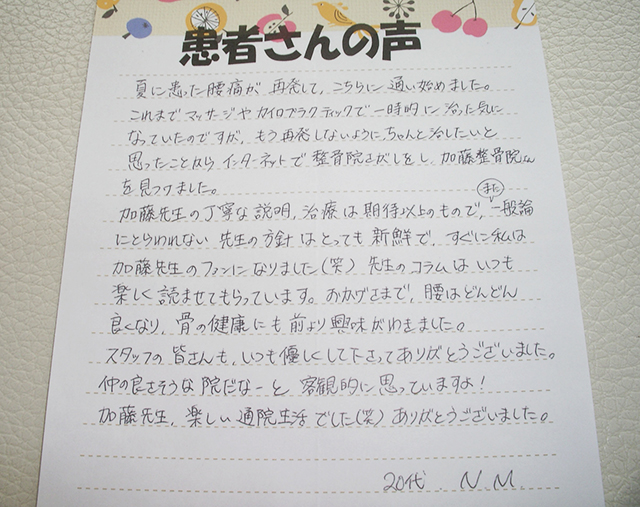 患者さんの声
夏に患った腰痛が、再発して、こちらに通い始めました。
これまでマッサージやカイロプラクティックで一時的に治った気に
なっていたのですが、もう再発しないように、ちゃんと治したいと
思ったことから インターネットで整骨院さがしをし、加藤整骨院さん
を見つけました。
加藤先生の丁寧な説明、治療は期待以上のもので、また一般論
にとらわれない 先生の方針はとっても新鮮で、すぐに私は
加藤先生のファンになりました(笑) 先生のコラムはいつも
楽しく読ませてもらっています。おかげさまで、腰はどんどん
良くなり、骨の健康にも前より興味がわきました。
スタッフの皆さんも、いつも優しくして下さってありがとうございました。
仲の良さそうな院だなーと 客観的に思っていますよ!
加藤先生、楽しい通院生活でした(笑) ありがとうございました。
20代 N.M.